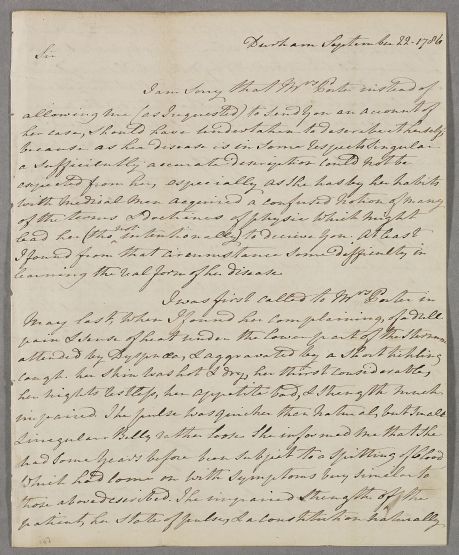 Durham September 22 - 1786
Sir
I am Sorry that Mrs Porter instead of
allowing me (as I requested) to Send you an account of
her case, Should have undertaken to describe it herself,
because as her disease is in Some respects Singular
a Sufficiently accurate description could not be
expected from her, especially as She has by her habits
with medical men acquired a confused notion of many
of the terms & doctrines of physic which might
lead her (tho' not intentionally) to deceive you. At least
I found from that circumstance Some difficulty in
learning the real form of her disease
I was first called to Mrs Porter in
May last, when I found her complaining of a dull
pain & Sense of heat under the lower part of the Sternum
attended by Dyspnœa, & aggravated by a Short tickling
cough. her Skin was hot & dry, her thirst considerable,
her nights restless, her appetite bad, & Strength much
impaired The pulse was quicker than natural, but Small
& irregular. Belly rather loose. She informed me that She
had Some years before been Subject to a Spitting of blood
which had come on with Symptoms very Similar to
those above described. The impaired Strength of the
patient, her State of pulse, & a constitution naturally